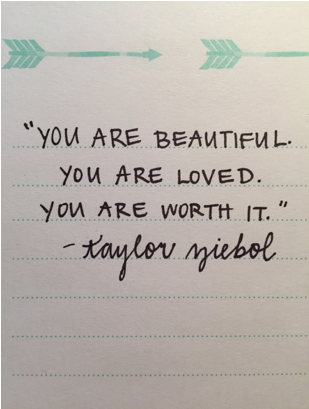 "YOU ARE BEAUTIFUL.
YOU ARE LOVED.
YOU ARE WORTH IT."
- taylor ziebol